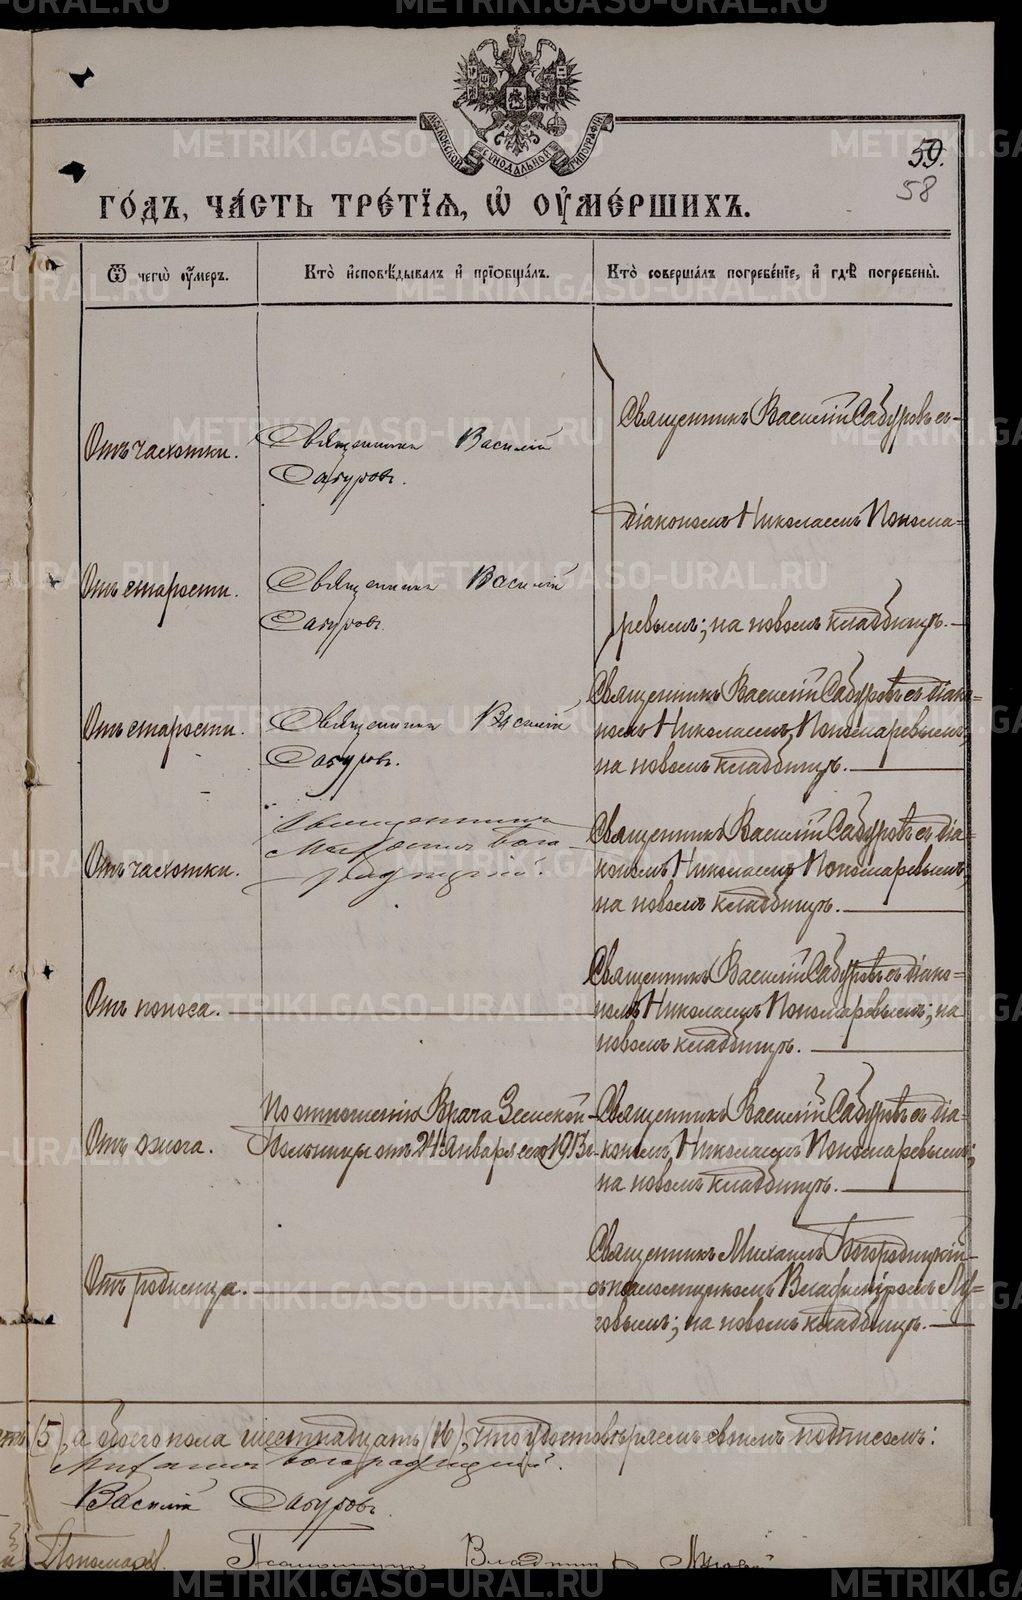 METRIKI.GASO-URAL.RU
МОСКОВСКОЙ СѴНОДАЛЬНОЙ ТИПОГРАФІИ
59.
58
ГО́ДЪ, ЧА́СТЬ ТРЕ́ТІѦ, Ѡ ОУ҆МЕ́РШИХЪ.
Ѿ чегѡ̀ оу҆́меръ.
Кто̀ и҆сповѣ́дывалъ и҆ пріѡбща́лъ.
Кто̀ соверша́лъ погребе́ніе, и҆ гдѣ̀ погребены̀.
Отъ чахотки.
Священникъ Василій
Сабуровъ.
Священникъ Василій Сабуровъ съ
діакономъ Николаемъ Понома-
ревымъ; на новомъ кладбищѣ.
Отъ старости.
Священникъ Василій
Сабуровъ.
Отъ старости.
Священникъ Василій
Сабуровъ.
Священникъ Василій Сабуровъ съ діако-
номъ Николаемъ Пономаревымъ;
на новомъ кладбищѣ.
Отъ чахотки.
Священникъ
Михаилъ Бого-
родицкій.
Священникъ Василій Сабуровъ съ діа-
кономъ Николаемъ Пономаревымъ;
на новомъ кладбищѣ.
Отъ поноса.
Священникъ Василій Сабуровъ съ діако-
номъ Николаемъ Пономаревымъ; на
новомъ кладбищѣ.
Отъ ожога.
По отношенію Врача Земской
Больницы отъ 24 Января сего 1913 г.
Священникъ Василій Сабуровъ съ діа-
кономъ Николаемъ Пономаревымъ;
на новомъ кладбищѣ.
Отъ родимца.
Священникъ Михаилъ Богородицкій
съ псаломщикомъ Владиміромъ Лу-
говымъ; на новомъ кладбищѣ.
(5), а обоего пола шестнадцать (16), что удостовѣряемъ своимъ подписомъ:
Михаилъ Богородицкій.
Василій Сабуровъ
Пономаревъ. Псаломщикъ Владиміръ Луговой